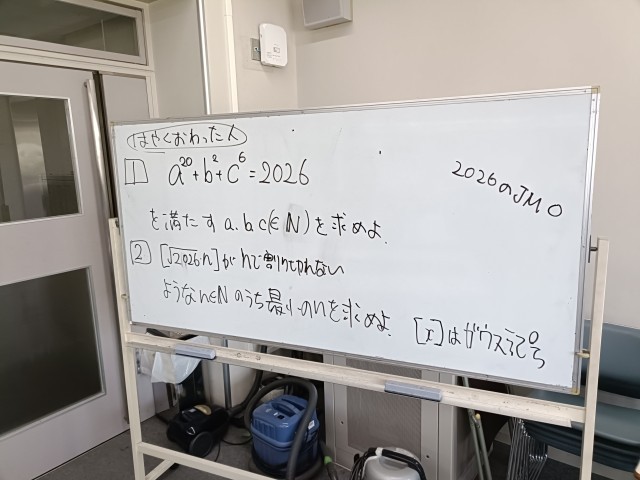 はやくおわった人
1 a^20+b^2+c^6=2026
2026のJMO
を満たす a.b.c(∈N)を求めよ.
2 [√2026n]がnで割りきれない
ようなn∈Nのうち最小のnを求めよ.
[x]はガウス